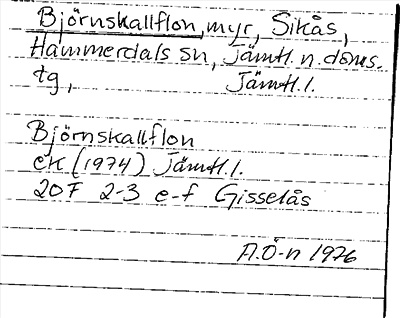 Björnskallflon, myr, Sikås,
Hammerdals sn, Jämtl. n. doms.
tg, Jämtl. l.
Björnskallflon
ek (1974) Jämtl. l.
20F 2-3 e-f Gisselås
A.Ö-n 1976